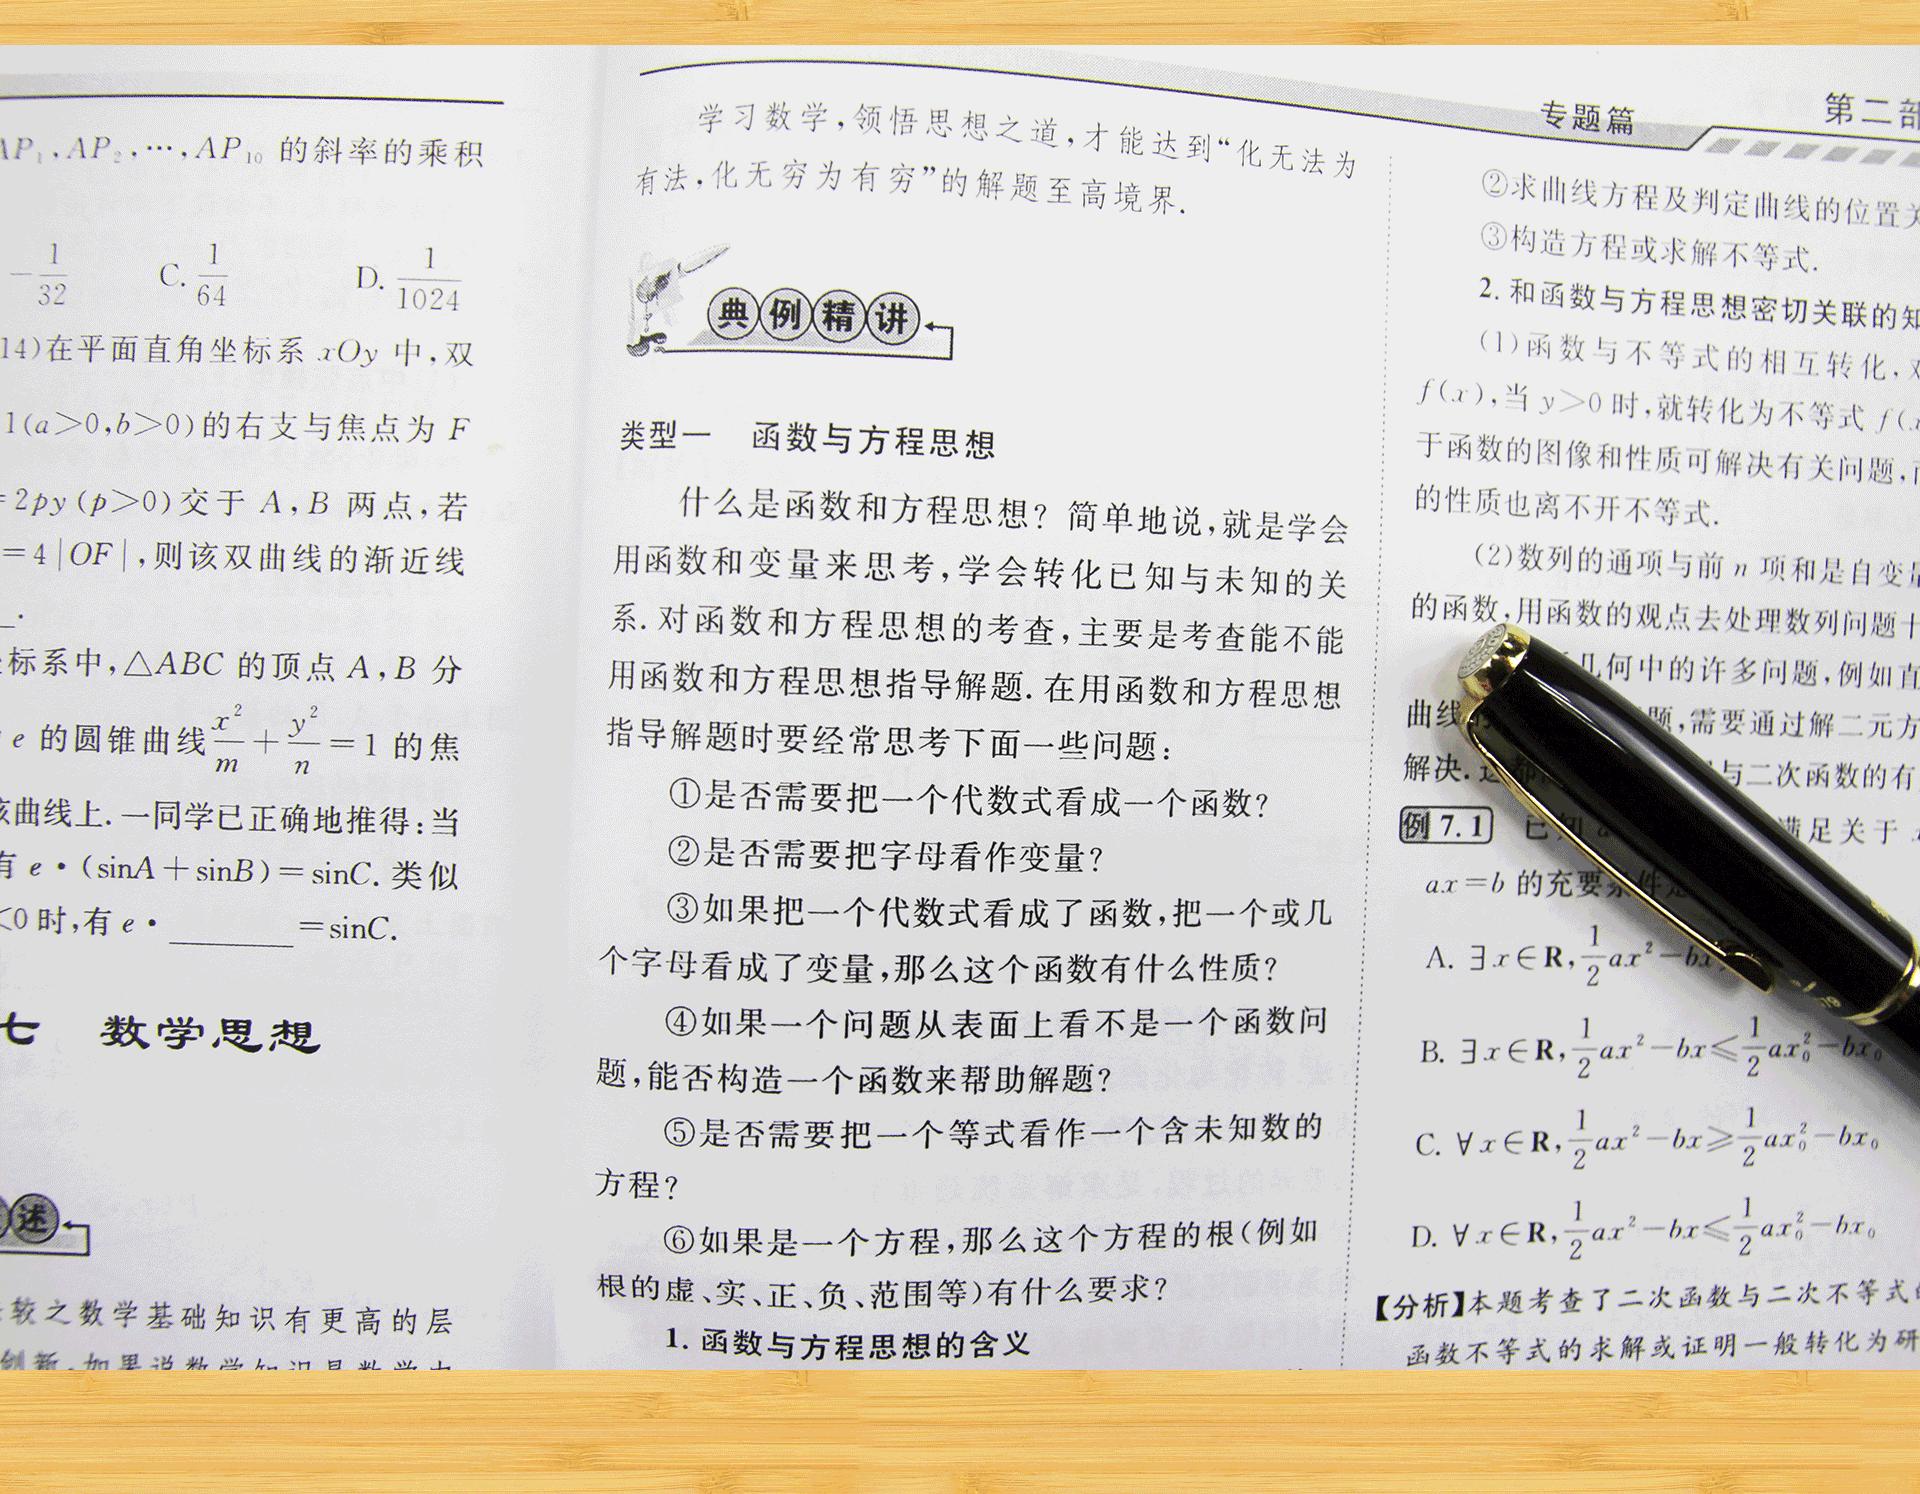 AP₁,AP₂,…,AP₁₀ 的斜率的乘积
-1/32 C. 1/64 D. 1/1024
14)在平面直角坐标系 xOy 中,双
1(a>0,b>0)的右支与焦点为 F
=2py(p>0)交于 A,B 两点,若
=4|OF|,则该双曲线的渐近线
.
标系中,△ABC 的顶点 A,B 分
e 的圆锥曲线x²/m+y²/n=1 的焦
该曲线上.一同学已正确地推得:当
有 e·(sinA+sinB)=sinC.类似
<0 时,有 e·________=sinC.
七 数学思想
述
较之数学基础知识有更高的层
创新.如果说数学知识是数学内
学习数学,领悟思想之道,才能达到“化无法为
有法,化无穷为有穷”的解题至高境界.
典例精讲
类型一 函数与方程思想
什么是函数和方程思想? 简单地说,就是学会
用函数和变量来思考,学会转化已知与未知的关
系.对函数和方程思想的考查,主要是考查能不能
用函数和方程思想指导解题.在用函数和方程思想
指导解题时要经常思考下面一些问题:
①是否需要把一个代数式看成一个函数?
②是否需要把字母看作变量?
③如果把一个代数式看成了函数,把一个或几
个字母看成了变量,那么这个函数有什么性质?
④如果一个问题从表面上看不是一个函数问
题,能否构造一个函数来帮助解题?
⑤是否需要把一个等式看作一个含未知数的
方程?
⑥如果是一个方程,那么这个方程的根(例如
根的虚、实、正、负、范围等)有什么要求?
1.函数与方程思想的含义
专题篇 第二部
②求曲线方程及判定曲线的位置关
③构造方程或求解不等式.
2.和函数与方程思想密切关联的知
(1)函数与不等式的相互转化,对
f(x),当 y>0 时,就转化为不等式 f(x
于函数的图像和性质可解决有关问题,而
的性质也离不开不等式.
(2)数列的通项与前 n 项和是自变量
的函数,用函数的观点去处理数列问题十
几何中的许多问题,例如直
曲线 题,需要通过解二元方
解决. 与二次函数的有
例 7.1 已知 a 满足关于 x
ax=b 的充要条件是
A. ∃x∈R,1/2ax²-bx
B. ∃x∈R,1/2ax²-bx≤1/2ax₀²-bx₀
C. ∀x∈R,1/2ax²-bx≥1/2ax₀²-bx₀
D. ∀x∈R,1/2ax²-bx≤1/2ax₀²-bx₀
【分析】本题考查了二次函数与二次不等式的
函数不等式的求解或证明一般转化为研